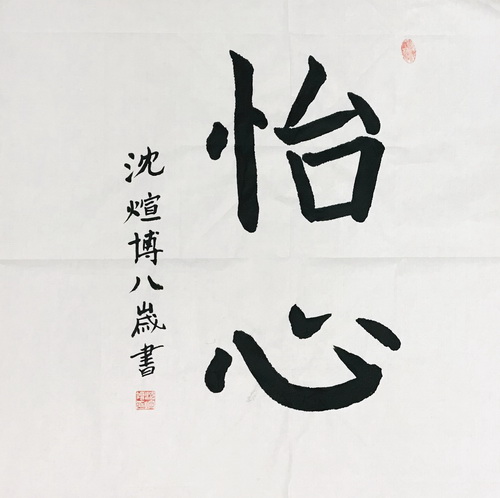 怡心
沈煊博八歲書